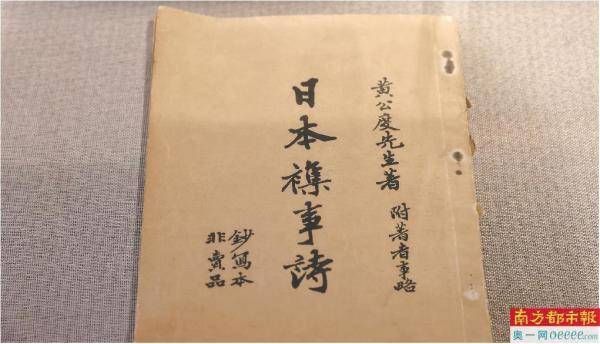 黄公度先生著 附著者事略
日本襍事詩
鈔寫本
非賣品
南方都市報
奥一网oeeee.com